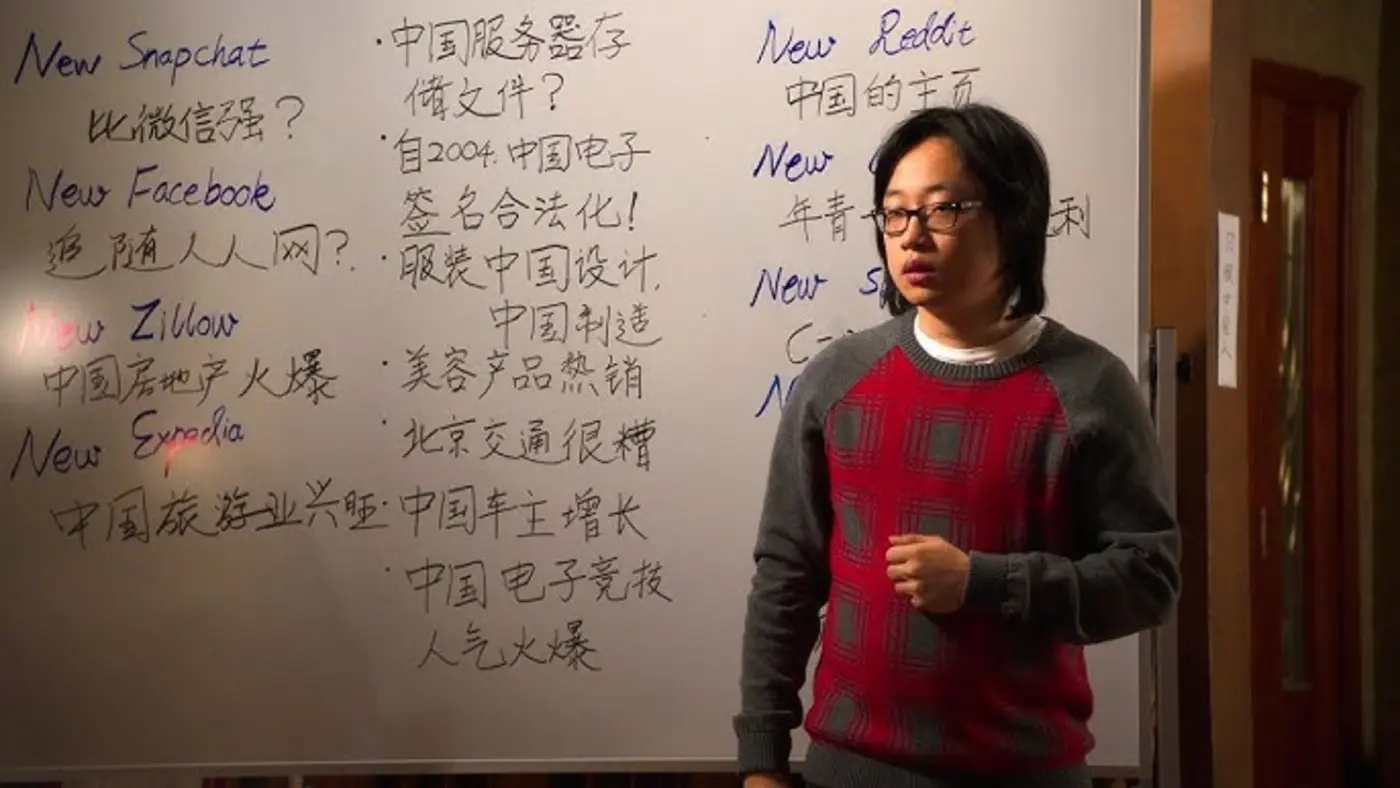 New Snapchat
比微信强？
New Facebook
追随人人网？
New Zillow
中国房地产火爆
New Expedia
中国旅游业兴旺
·中国服务器存
储文件？
·自2004.中国电子
签名合法化！
·服装中国设计.
中国制造
·美容产品热销
·北京交通很糟
·中国车主增长
·中国电子竞技
人气火爆
New Reddit
中国的主页
New
年青
利
New